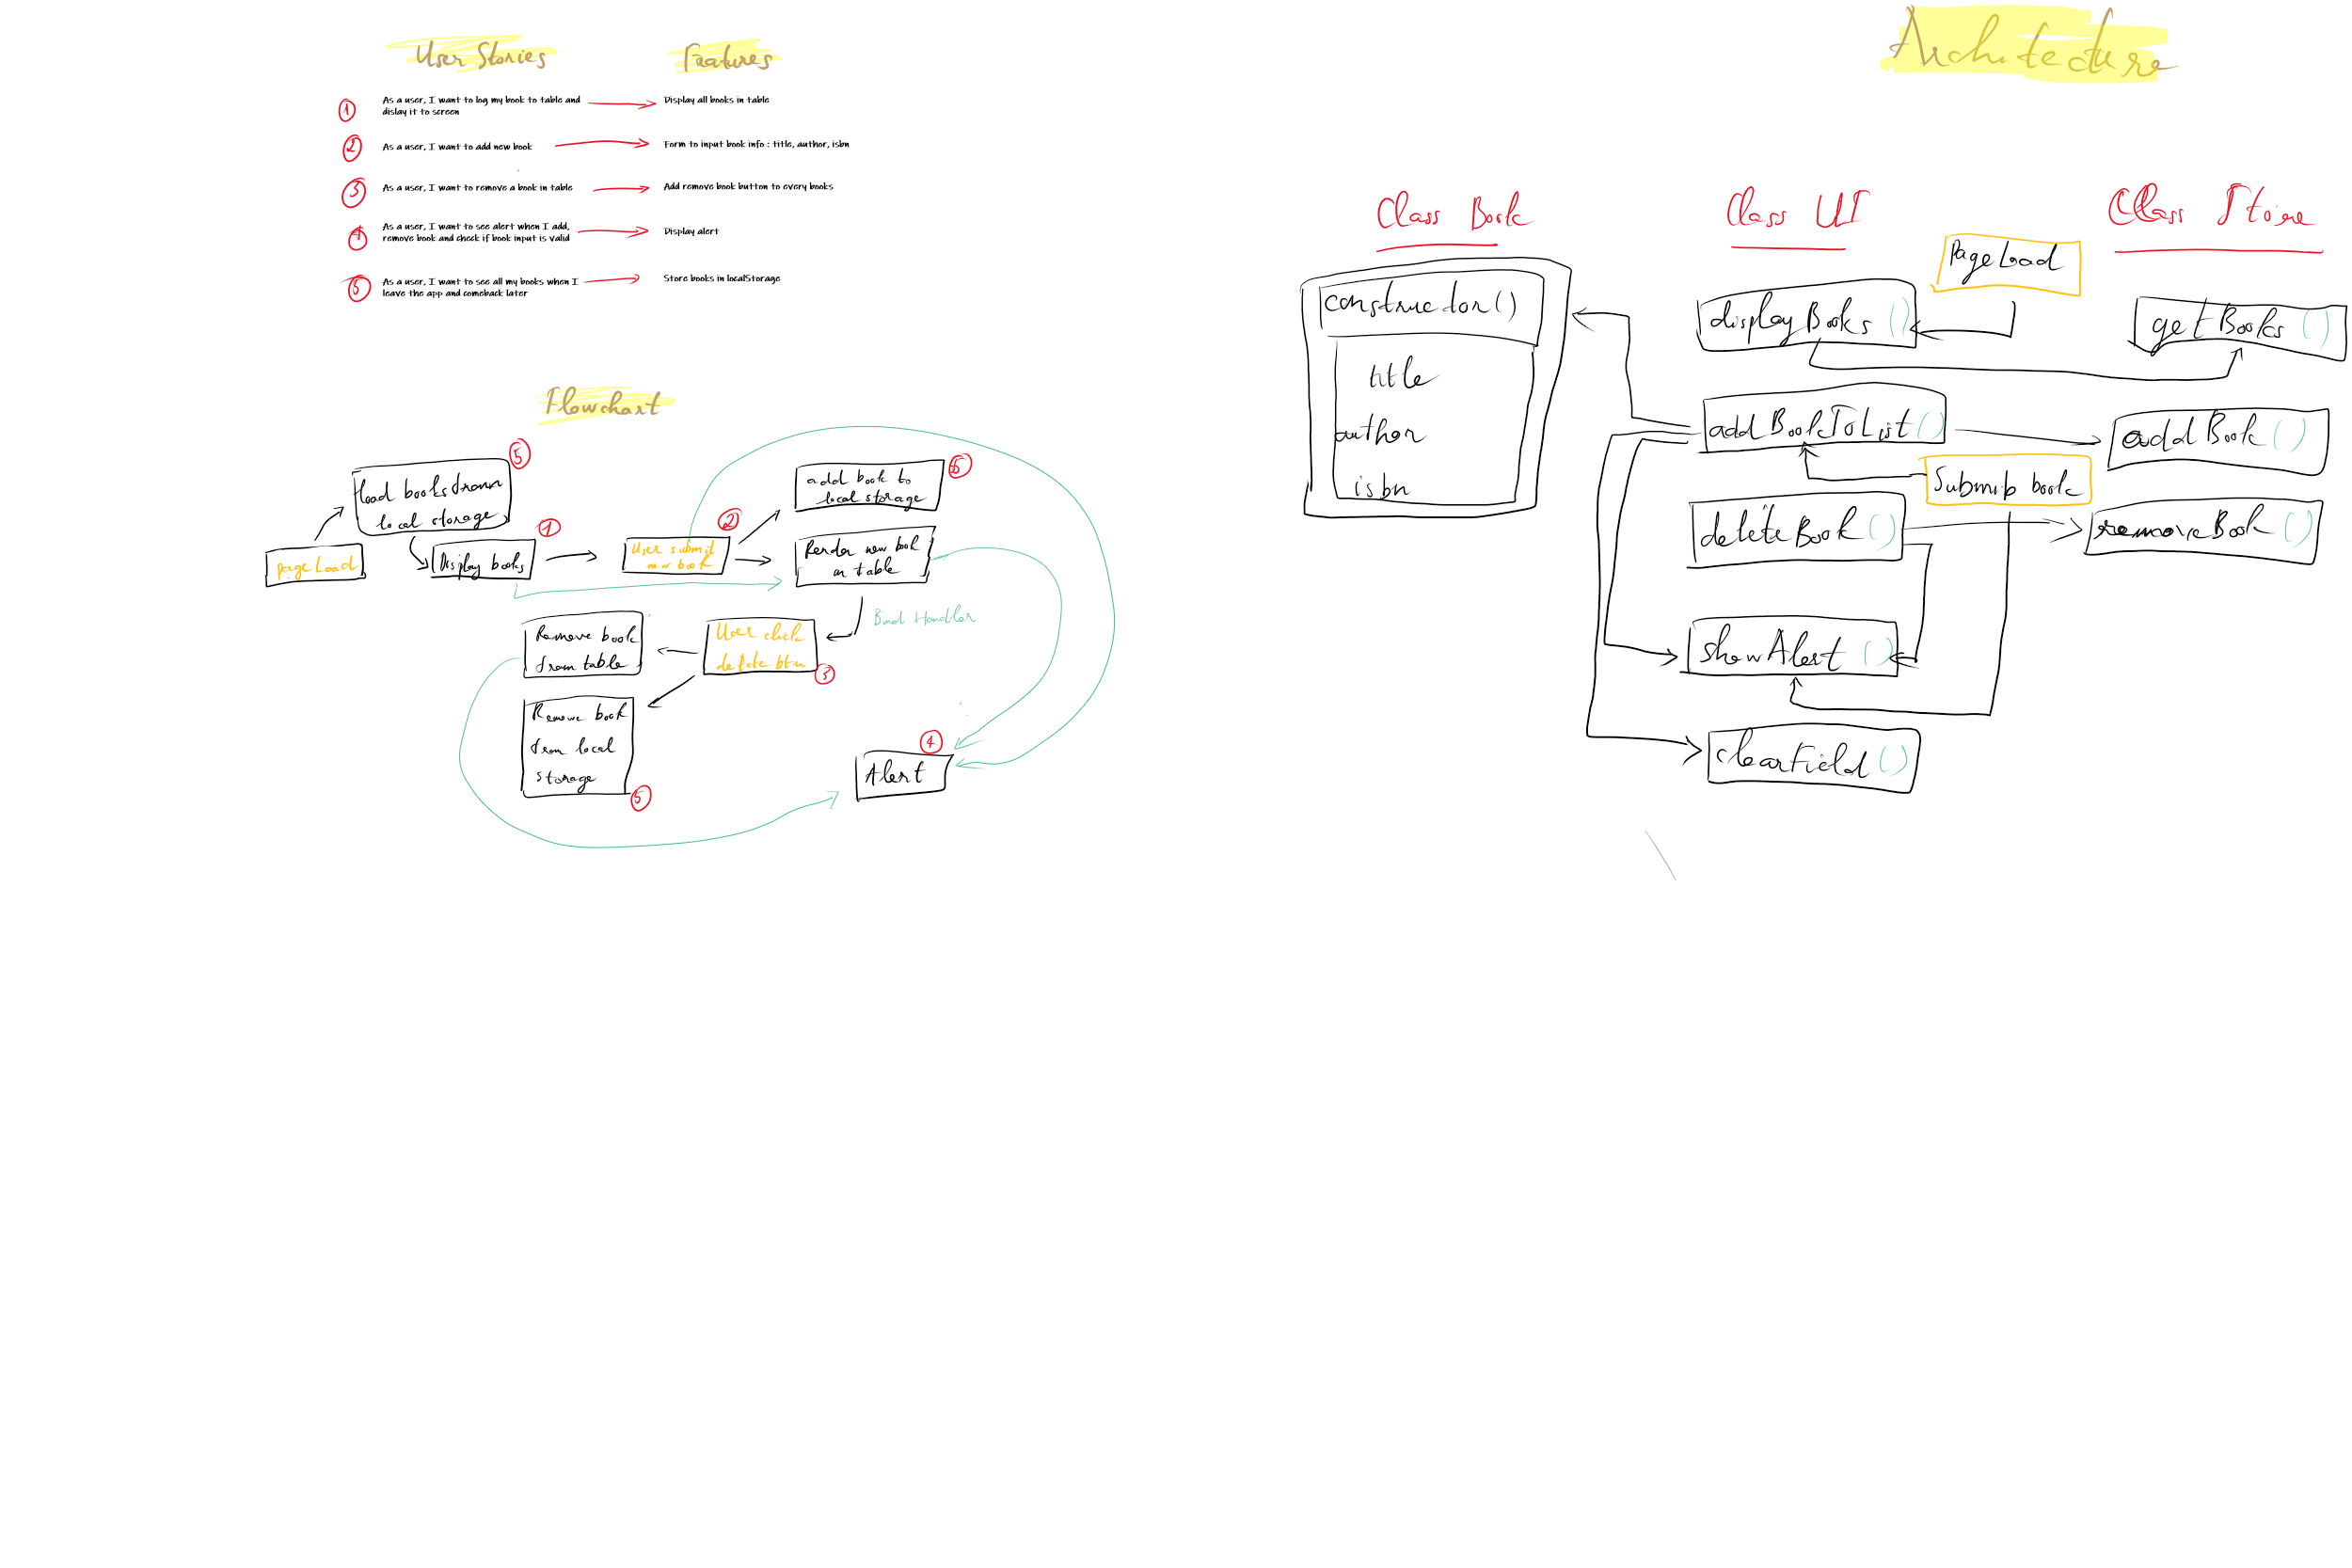 User Stories
Features
1
As a user, I want to log my book to table and
dislay it to screen
Display all books in table
2
As a user, I want to add new book
Form to input book info : title, author, isbn
3
As a user, I want to remove a book in table
Add remove book button to every books
4
As a user, I want to see alert when I add,
remove book and check if book input is valid
Display alert
5
As a user, I want to see all my books when I
leave the app and comeback later
Store books in localStorage
Flowchart
5
load books from
local storage
page Load
1
Display books
2
User submit
new book
5
add book to
local storage
Render new book
on table
Bind Handler
User click
delete btn
3
Remove book
from table
Remove book
from local
storage
5
4
Alert
Architecture
Class Book
constructor()
title
author
isbn
Class UI
Page Load
displayBooks ()
addBookToList ()
Submit book
deleteBook ()
showAlert ()
clearField ()
Class Store
getBooks ()
addBook ()
removeBook ()